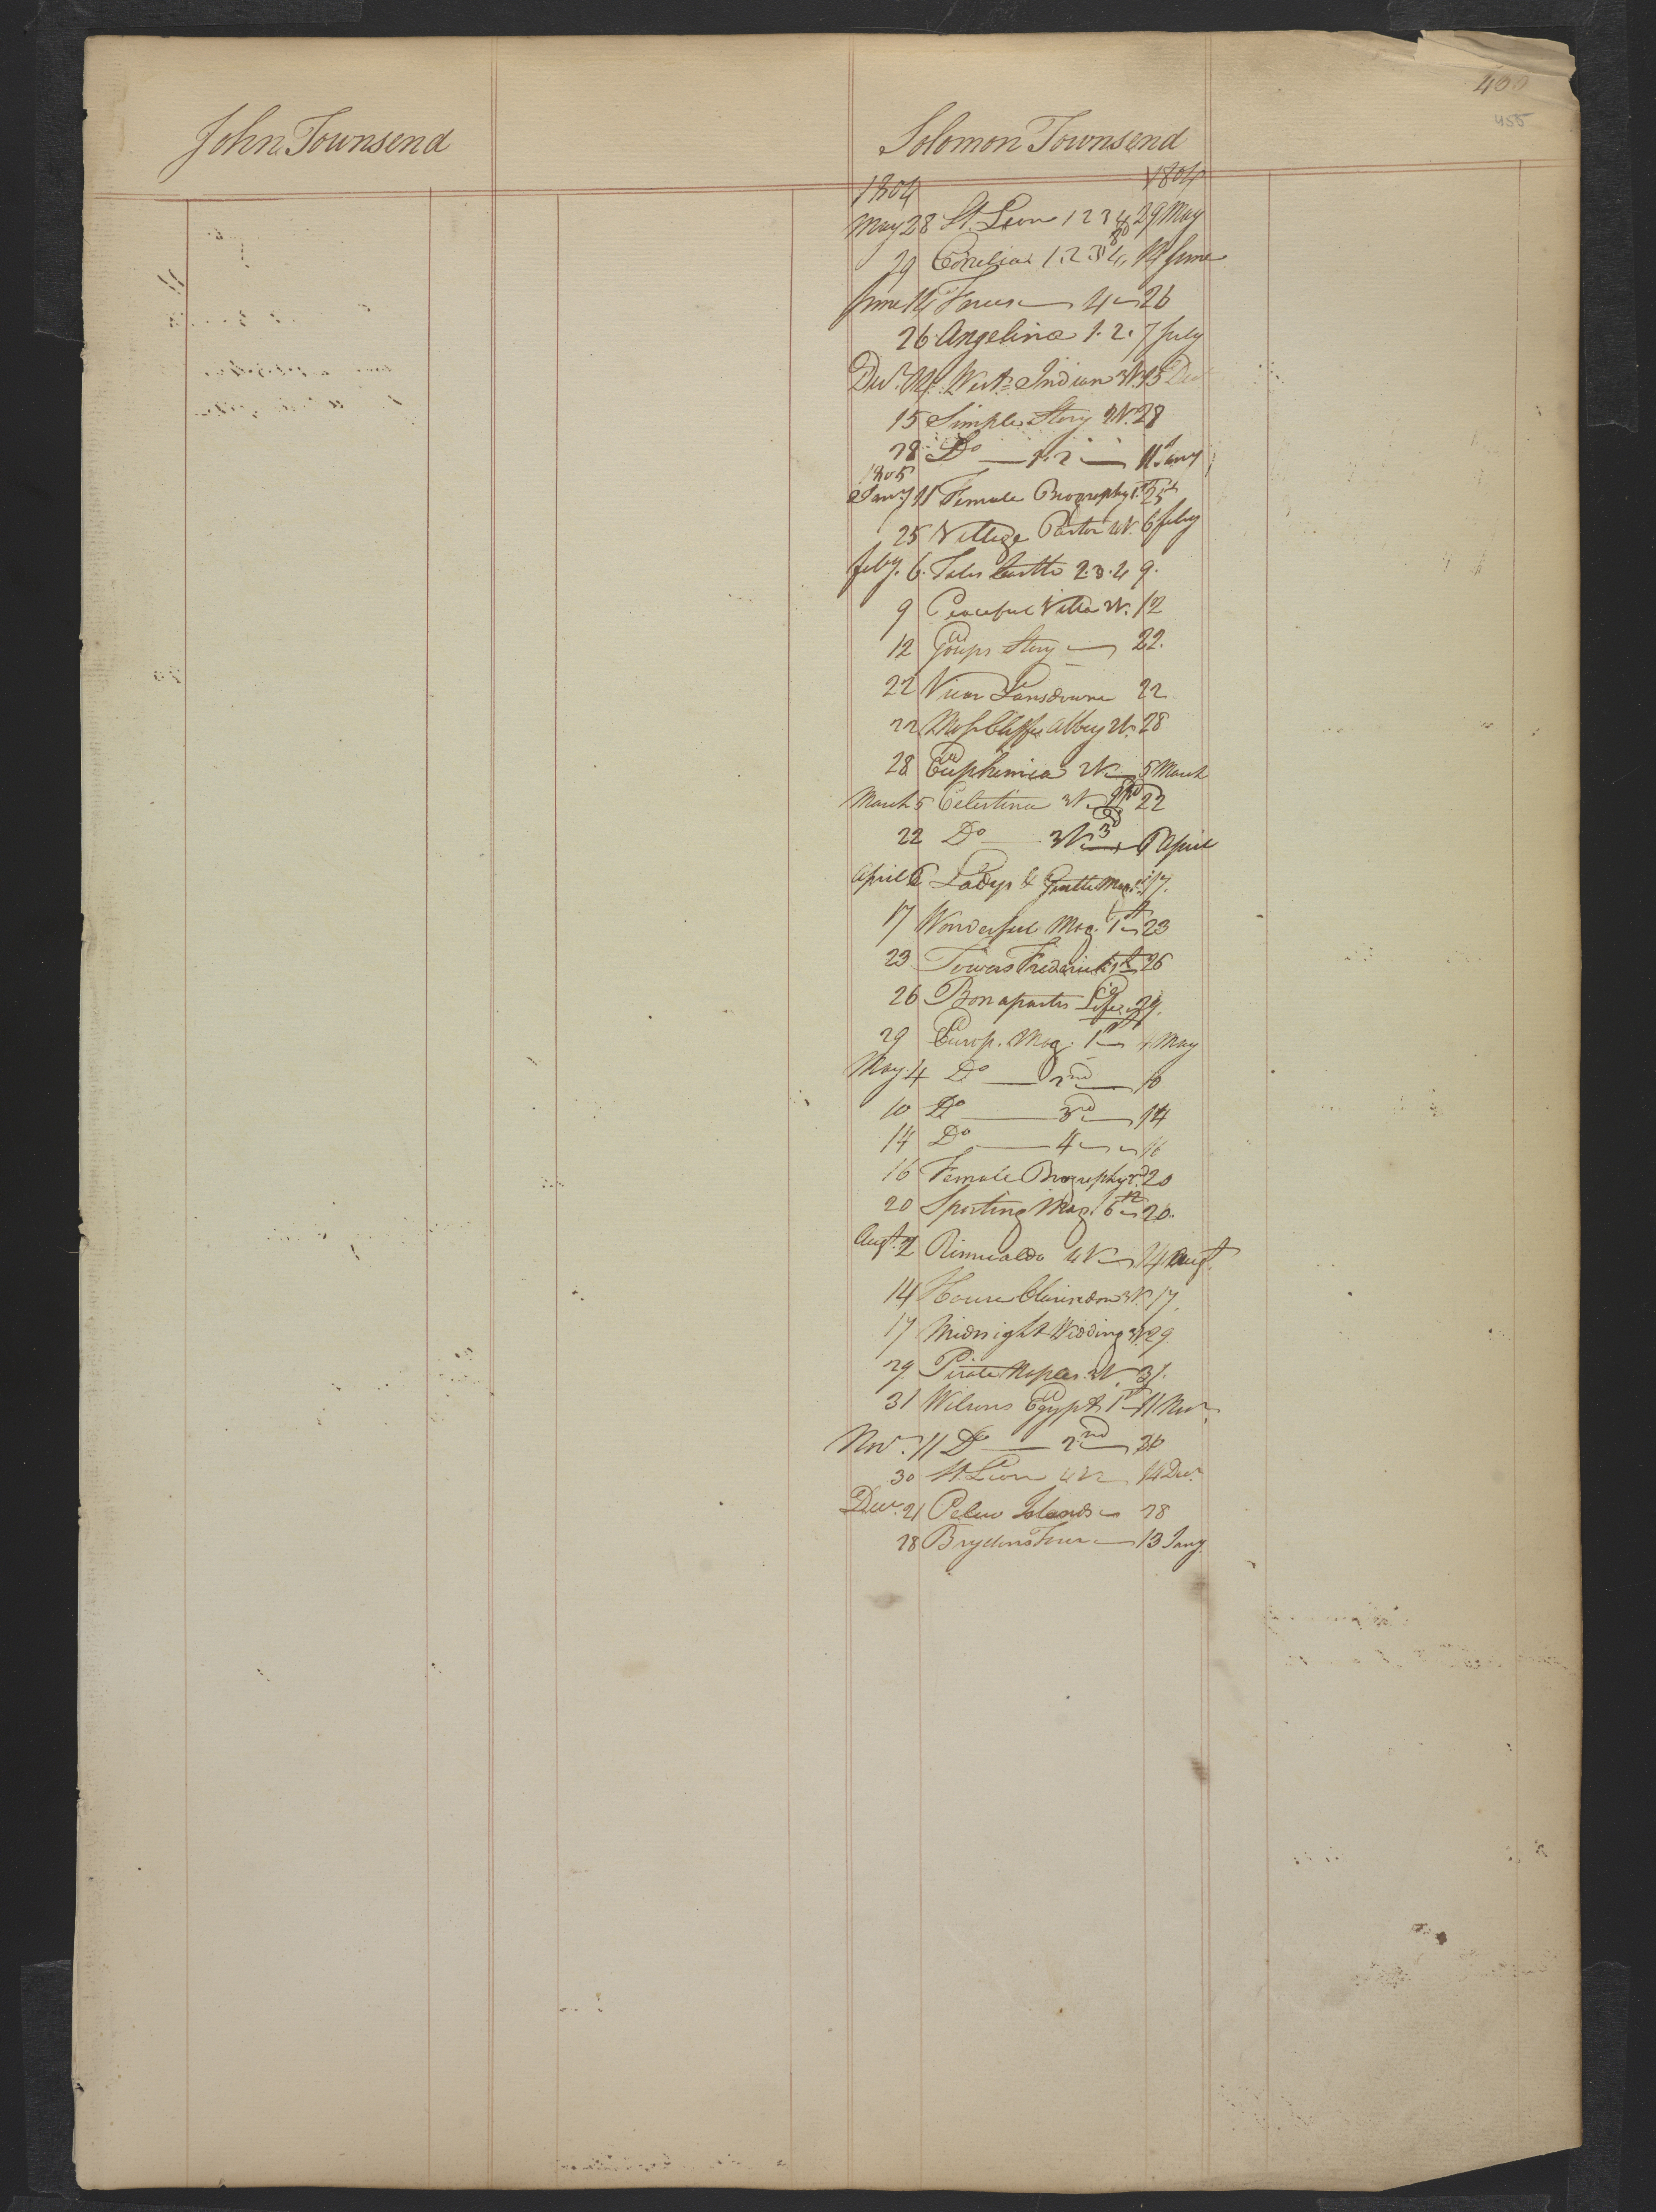 400
455
John Townsend
Solomon Townsend
1804 1804
May 28 St. Leon 1 2 3 4 29 May
29 1. 2. 3 4, 14 June
June 14 4 26
26. Angelina 1. 2. 7 July
Decr. 14. West Indian 15 Decr
15 Simple Story 28
28 Do 1. 2 11 Jany
1805
Jany 11 Female Biography 1st 25
25 Village Pastor W. 6 feby
feby. 6. Tales Castle 2. 3. 4 9.
9 Peaceful Villa 2V. 12
12 Story 22.
22 Vicar Lansdowne 22
22 Abbey 2V. 28
28 Euphemia 2V 5 March
March 5 Celestina 3V. 22
22 Do 3V. 3d 6 April
April 6 Ladys & Gentle Mag. 17.
17 Wonderful Mag. 1st 23
23 Towers Frederick 1st 26
26 Bonapartes Life 29.
29 Europ. Mag. 1st 4 May
May. 4 Do 2nd 10
10 Do 3rd 14
14 Do 4 16
16 Female Biography 2d. 20
20 Sporting Mag. 6th 20.
Augt. 2 Rimualdo 4V 14 Augt.
14 17.
17 Midnight Wedding 3V. 29.
29. Pirate Naples. 3V. 31.
31 Wilsons Egypt 1st 11 Novr.
Novr. 11 Do 2nd 30
30 St. Leon 4V 14 Decr.
Decr. 21 Pelew Islands 28
28 Brydons Tour 13 Jany.